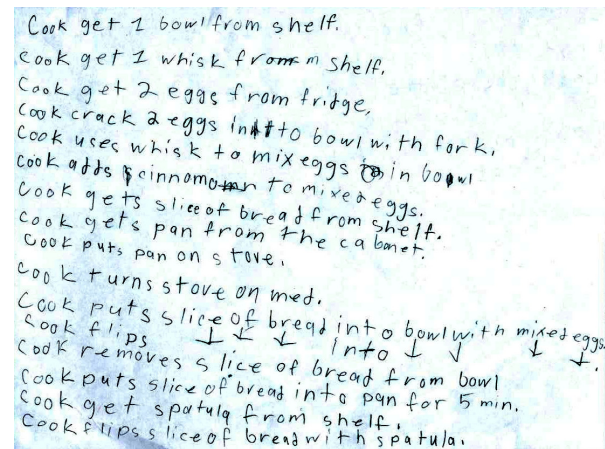 Cook get 1 bowl from shelf.
Cook get 1 whisk from shelf.
Cook get 2 eggs from fridge,
Cook crack 2 eggs into bowl with fork.
Cook uses whisk to mix eggs in bowl
Cook adds cinnomomn to mixed eggs.
Cook gets slice of bread from shelf.
Cook gets pan from the cabonet.
Cook puts pan on stove.
Cook turns stove on med.
Cook puts slice of bread into bowl with mixed eggs.
Cook flips ↓ ↓ ↓ into ↓ ↓ ↓ ↓.
Cook removes slice of bread from bowl
Cook puts slice of bread into pan for 5 min.
Cook get spatula from shelf.
Cook flips slice of bread with spatula.